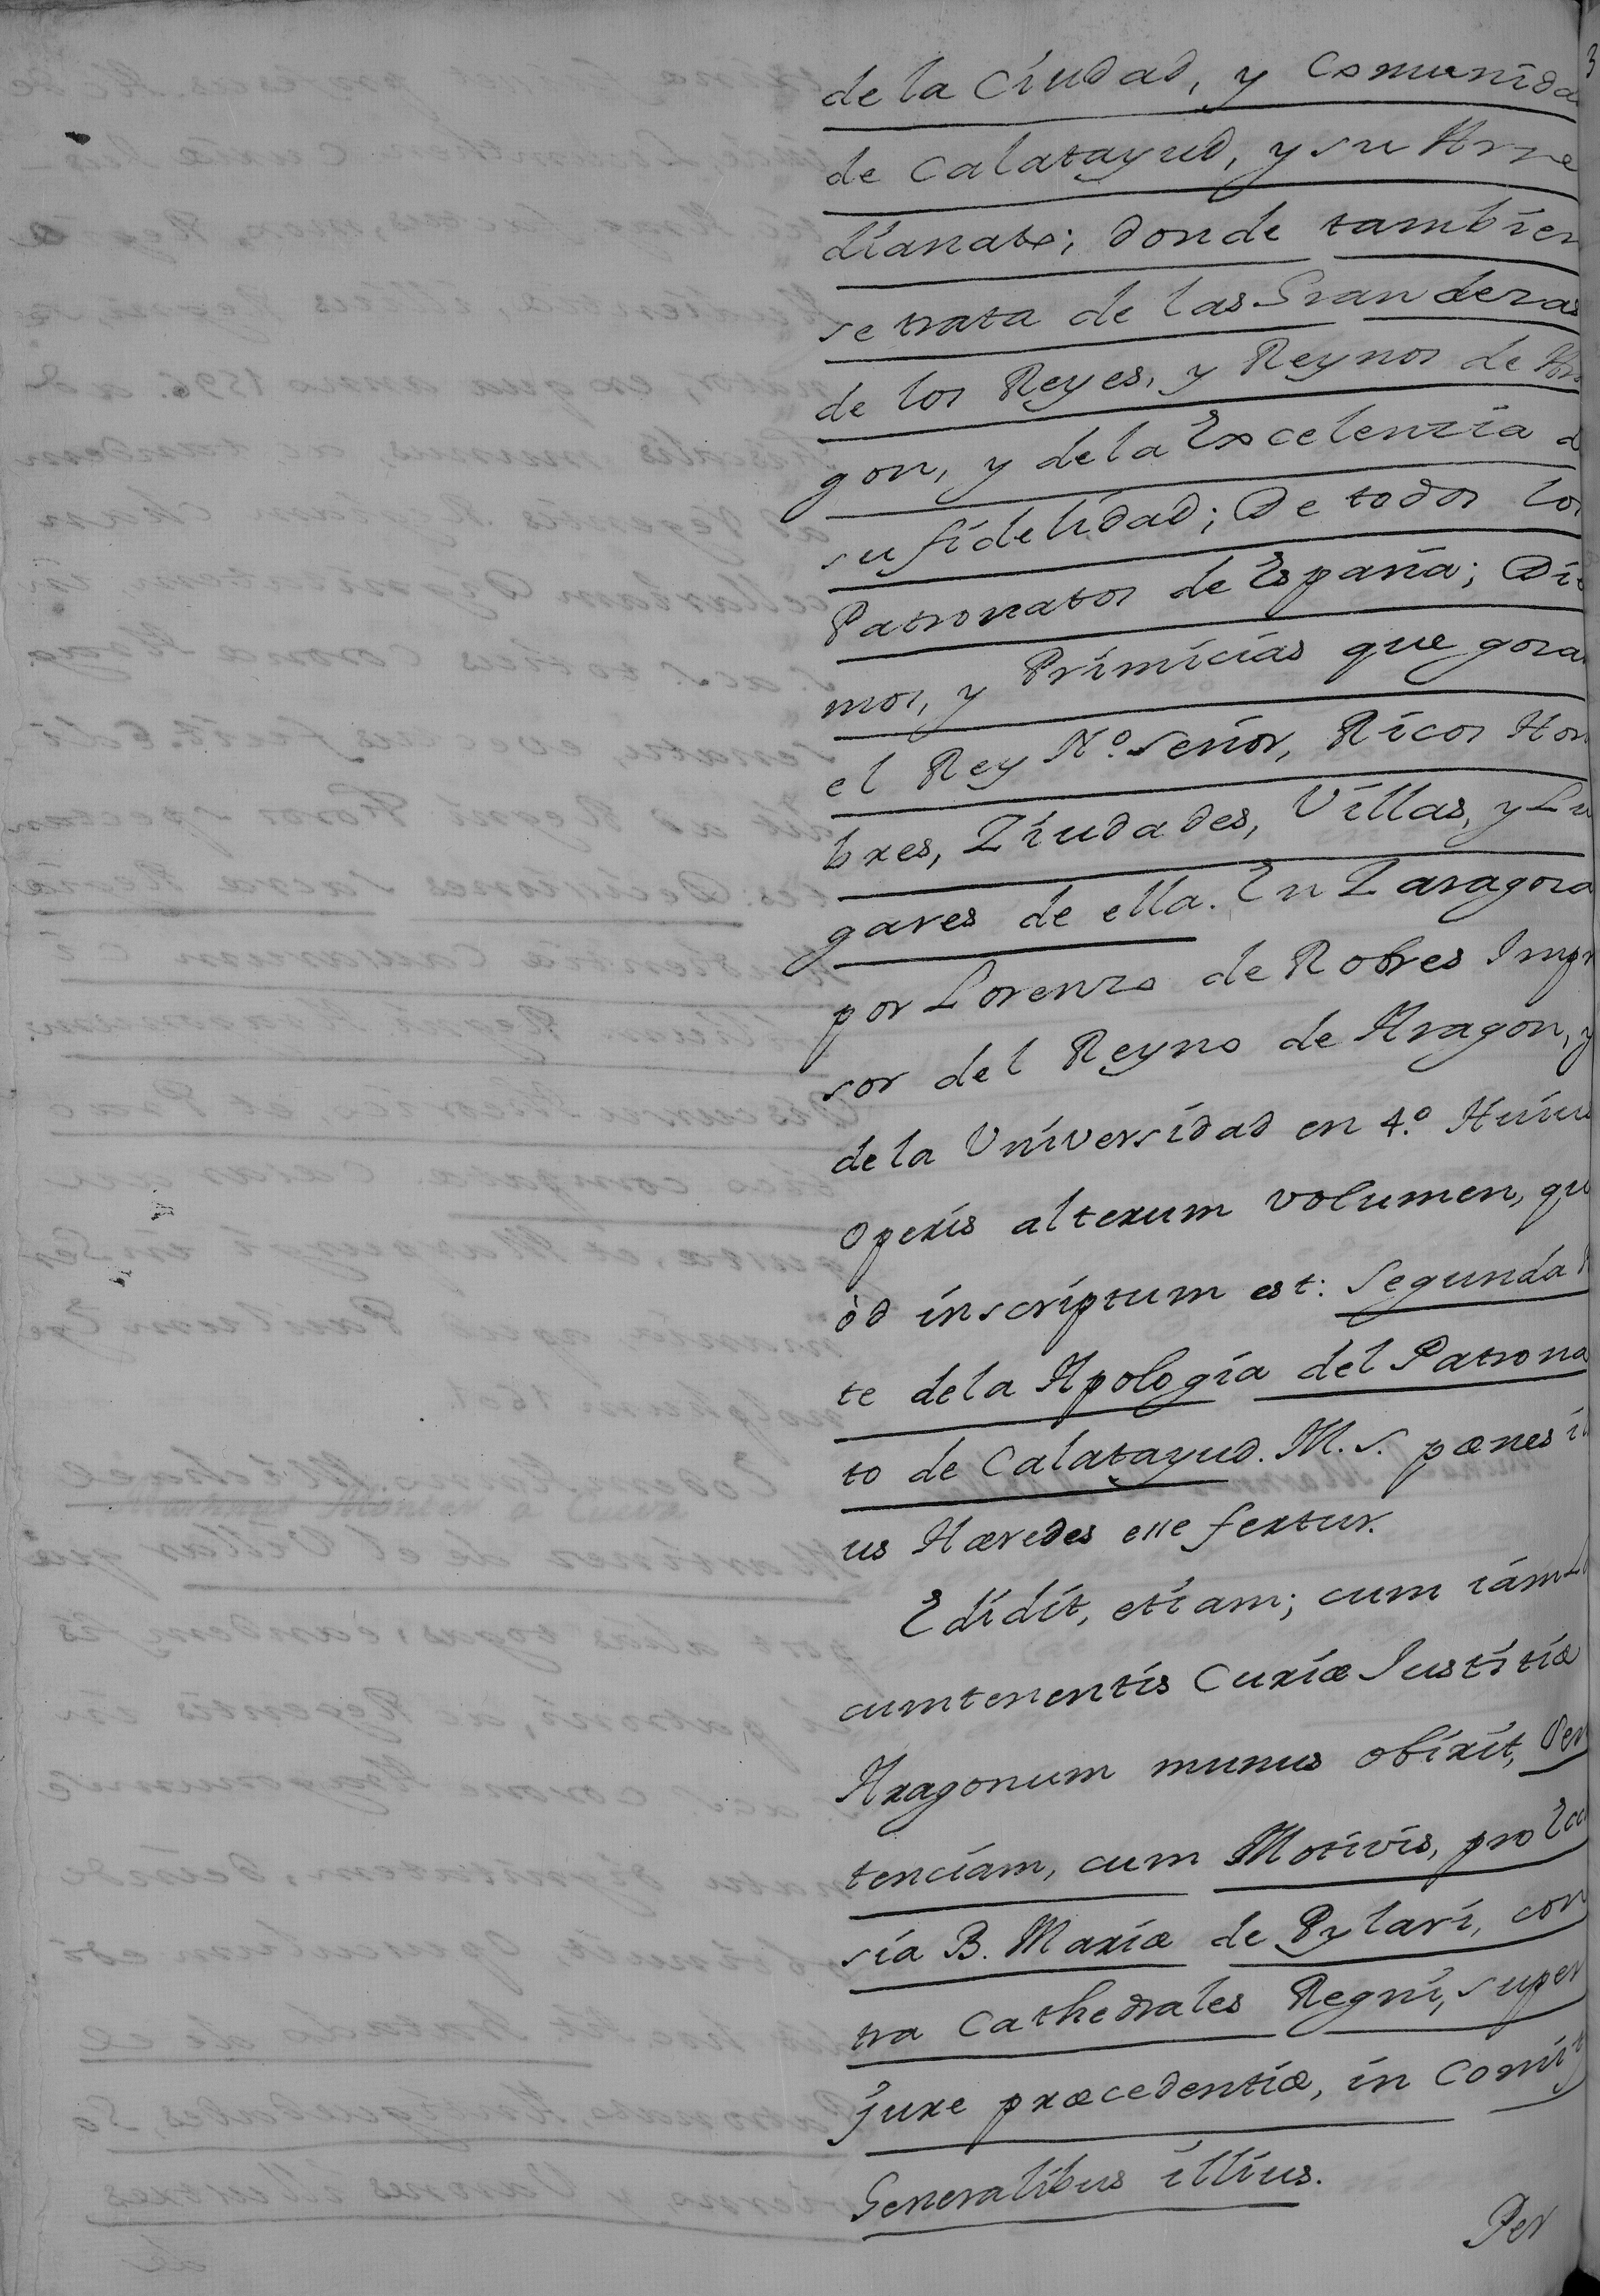 de la Ciudad, y Comunida
de Calatayud, y su Arce
dianato; donde tambien
se trata de las Grandezas
de los Reyes, y Reynos de Ara
gon, y de la Excelenzia d
su fidelidad; De todos los
Patronatos de España; Diez
mos, y Primicias que goza
el Rey N.º Señor, Ricos Hom
bres, Ziudades, Villas, y Lu
gares de ella. En Zaragoza
por Lorenzo de Robres Impr
sor del Reyno de Aragon, y
de la Universidad en 4.º Huiu
operis alterum volumen, qu
òd inscriptum est: Segunda P
te de la Apologia del Patrona
to de Calatayud. M. S. pænes il
us Hæredes esse fertur.
Edidit, etiam; cum iám Lo
cumtenentis Curiæ Justitiæ
Aragonum munus obixit, Sen
tenciam, cum Motivis, pro Ecc
sia B. Mariæ de Pylari, con
tra Cathedrales Regni, super
jure præcedentiæ, in Comit
Generalibus illius.
Per